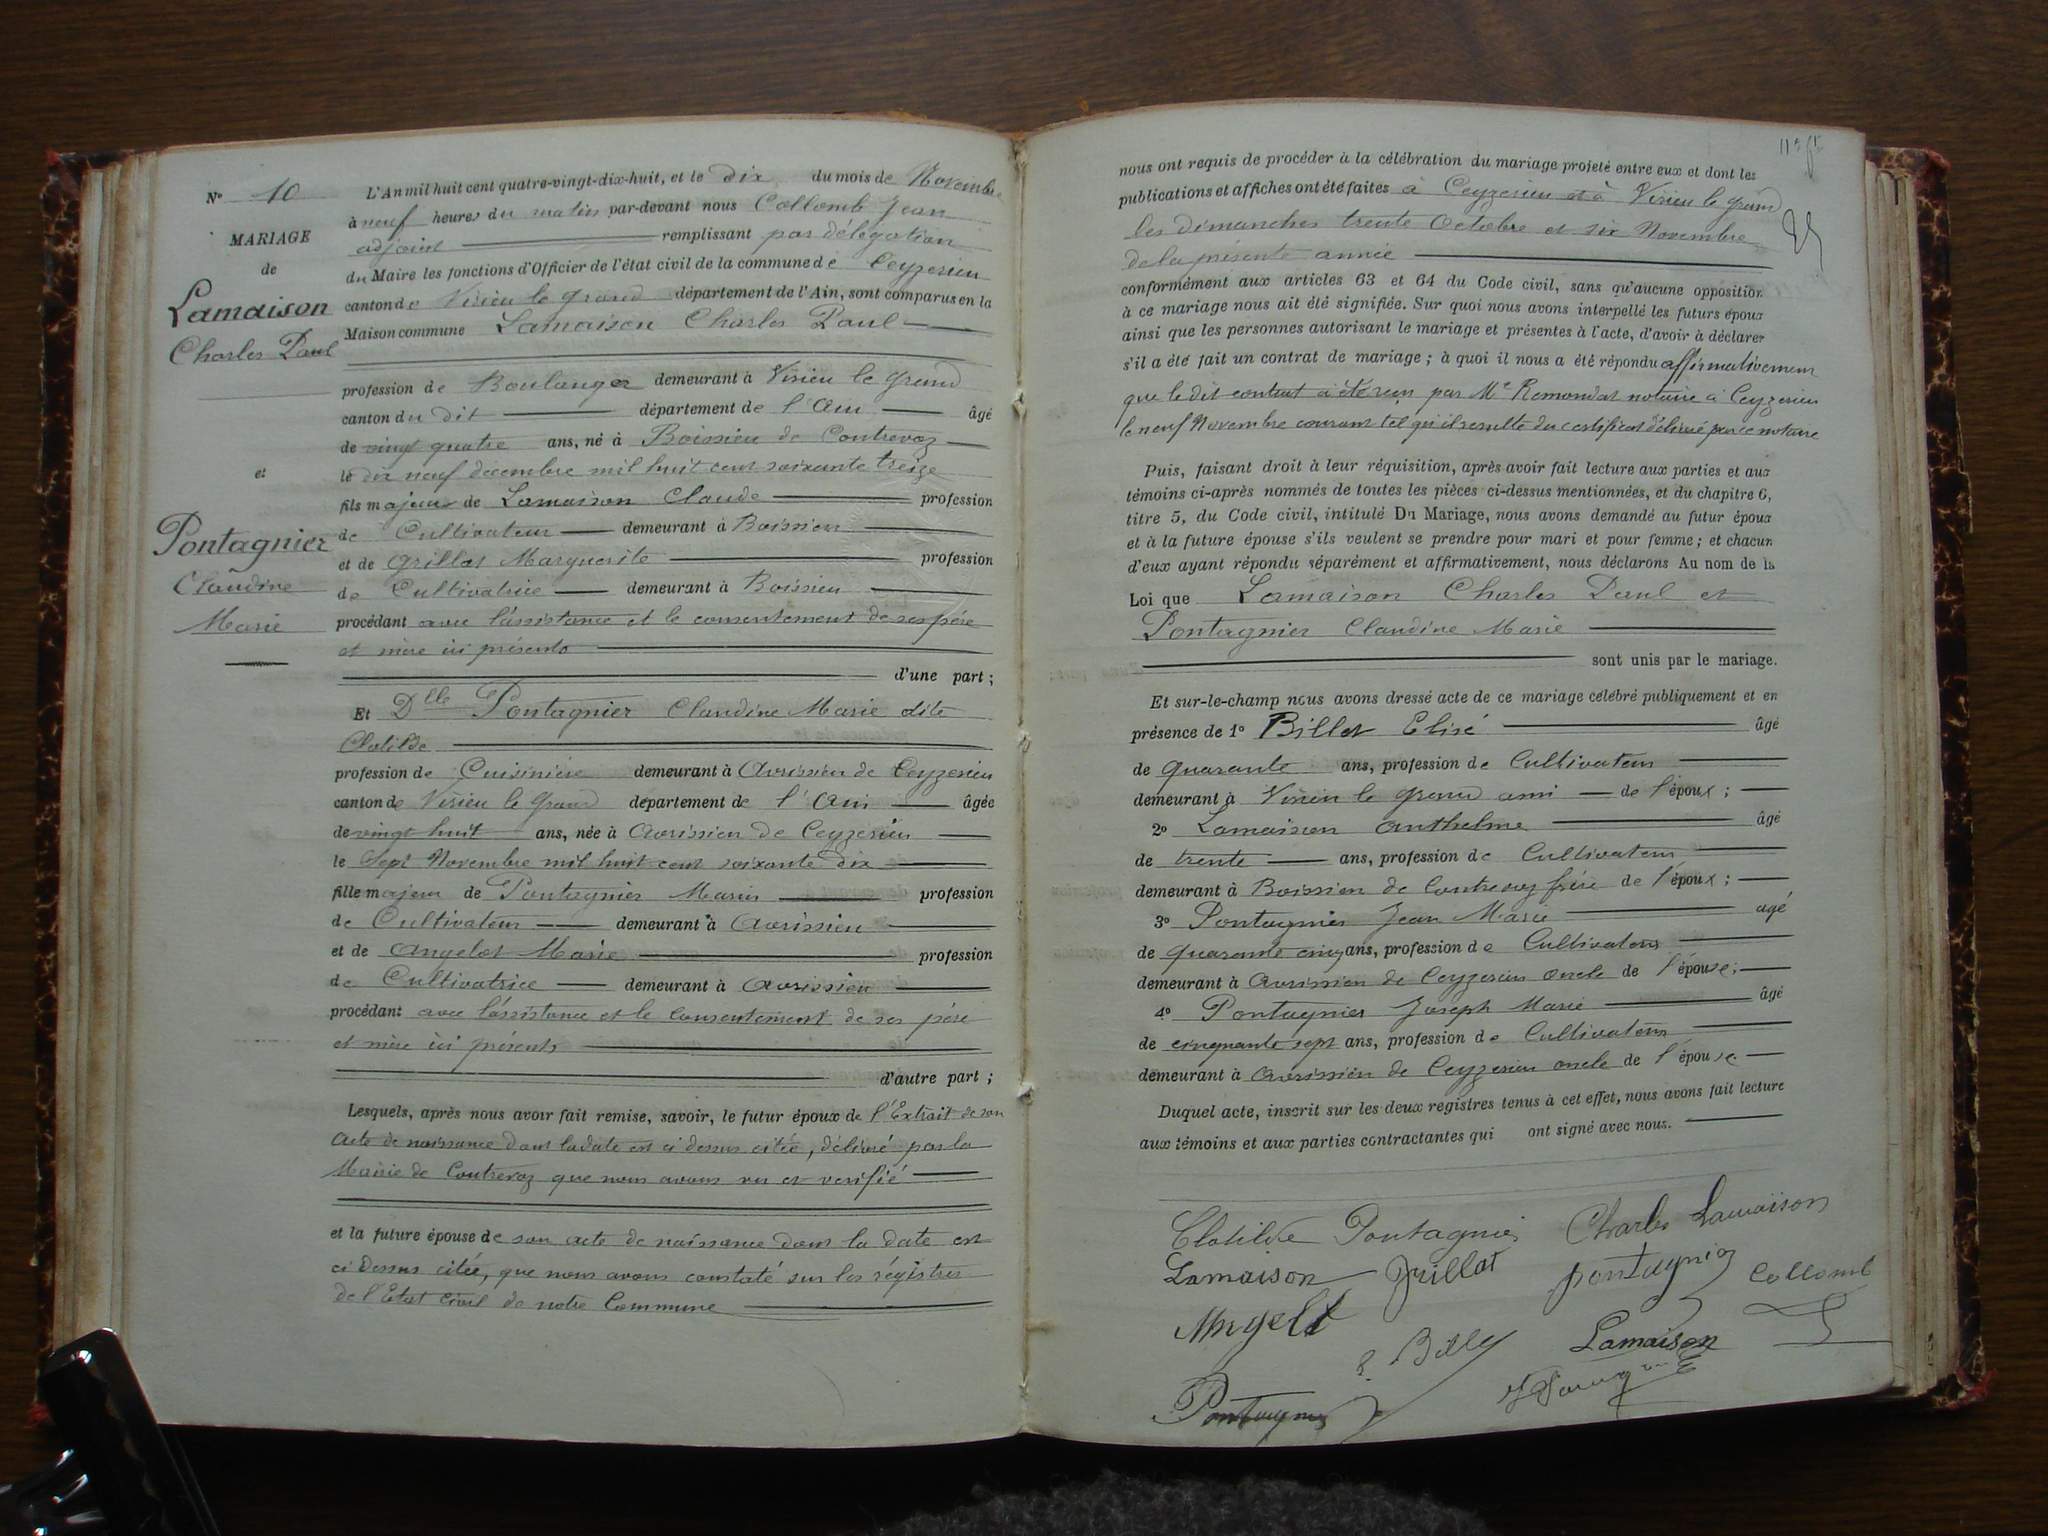 N° 10
MARIAGE
de
Lamaison
Charles Paul
et
Pontagnier
Claudine
Marie
L'An mil huit cent quatre-vingt-dix-huit, et le dix du mois de Novembre
à neuf heures du matin par-devant nous Collomb Jean
adjoint remplissant par délégation
du Maire les fonctions d'Officier de l'état civil de la commune de Ceyzerieu
canton de Virieu le Grand département de l'Ain, sont comparus en la
Maison commune Lamaison Charles Paul
profession de Boulanger demeurant à Virieu le Grand
canton du dit département de l'Ain âgé
de vingt quatre ans, né à Boissieu de Contrevoz
le dix neuf décembre mil huit cent soixante treize
fils majeur de Lamaison Claude profession
de Cultivateur demeurant à Boissieu
et de Grillat Marguerite profession
de Cultivatrice demeurant à Boissieu
procédant avec l'assistance et le consentement de ses père
et mère ici présents
d'une part ;
Et Dlle Pontagnier Claudine Marie dite
Clotilde
profession de Cuisinière demeurant à Avrissieu de Ceyzerieu
canton de Virieu le Grand département de l'Ain âgée
de vingt huit ans, née à Avrissieu de Ceyzerieu
le sept Novembre mil huit cent soixante dix
fille majeur de Pontagnier Marin profession
de Cultivateur demeurant à Avrissieu
et de Angelot Marie profession
de Cultivatrice demeurant à Avrissieu
procédant avec l'assistance et le consentement de ses père
et mère ici présents
d'autre part ;
Lesquels, après nous avoir fait remise, savoir, le futur époux de l'Extrait de son
acte de naissance dont la date est ci dessus citée, délivré par la
Mairie de Contrevoz que nous avons vu et verifié
et la future épouse de son acte de naissance dont la date est
ci dessus citée, que nous avons constaté sur les régistres
de l'Etat Civil de notre Commune
nous ont requis de procéder à la célébration du mariage projeté entre eux et dont les
publications et affiches ont été faites à Ceyzerieu et à Virieu le Grand
les dimanches trente Octobre et six Novembre
de la présente année
conformément aux articles 63 et 64 du Code civil, sans qu'aucune opposition
à ce mariage nous ait été signifiée. Sur quoi nous avons interpellé les futurs époux
ainsi que les personnes autorisant le mariage et présentes à l'acte, d'avoir à déclarer
s'il a été fait un contrat de mariage ; à quoi il nous a été répondu affirmativement
que le dit contrat a été reçu par Me Remondat notaire à Ceyzerieu
le neuf Novembre courant tel qu'il resulte du certificat délivré par ce notaire
Puis, faisant droit à leur réquisition, après avoir fait lecture aux parties et aux
témoins ci-après nommés de toutes les pièces ci-dessus mentionnées, et du chapitre 6,
titre 5, du Code civil, intitulé Du Mariage, nous avons demandé au futur époux
et à la future épouse s'ils veulent se prendre pour mari et pour femme ; et chacun
d'eux ayant répondu séparément et affirmativement, nous déclarons Au nom de la
Loi que Lamaison Charles Paul et
Pontagnier Claudine Marie
sont unis par le mariage.
Et sur-le-champ nous avons dressé acte de ce mariage célébré publiquement et en
présence de 1° Billet Elisé âgé
de quarante ans, profession de Cultivateur
demeurant à Virieu le Grand ami de l'époux ;
2° Lamaison Anthelme âgé
de trente ans, profession de Cultivateur
demeurant à Boissieu de Contrevoz frère de l'époux ;
3° Pontagnier Jean Marie agé
de quarante cinq ans, profession de Cultivateur
demeurant à Avrissieu de Ceyzerieu oncle de l'épouse ;
4° Pontagnier Joseph Marie âgé
de cinquante sept ans, profession de Cultivateur
demeurant à Avrissieu de Ceyzerieu oncle de l'épouse.
Duquel acte, inscrit sur les deux registres tenus à cet effet, nous avons fait lecture
aux témoins et aux parties contractantes qui ont signé avec nous.
Clotilde Pontagnier Charles Lamaison
Lamaison Grillat Pontagnier Collomb
Angelot Lamaison
Pontagnier